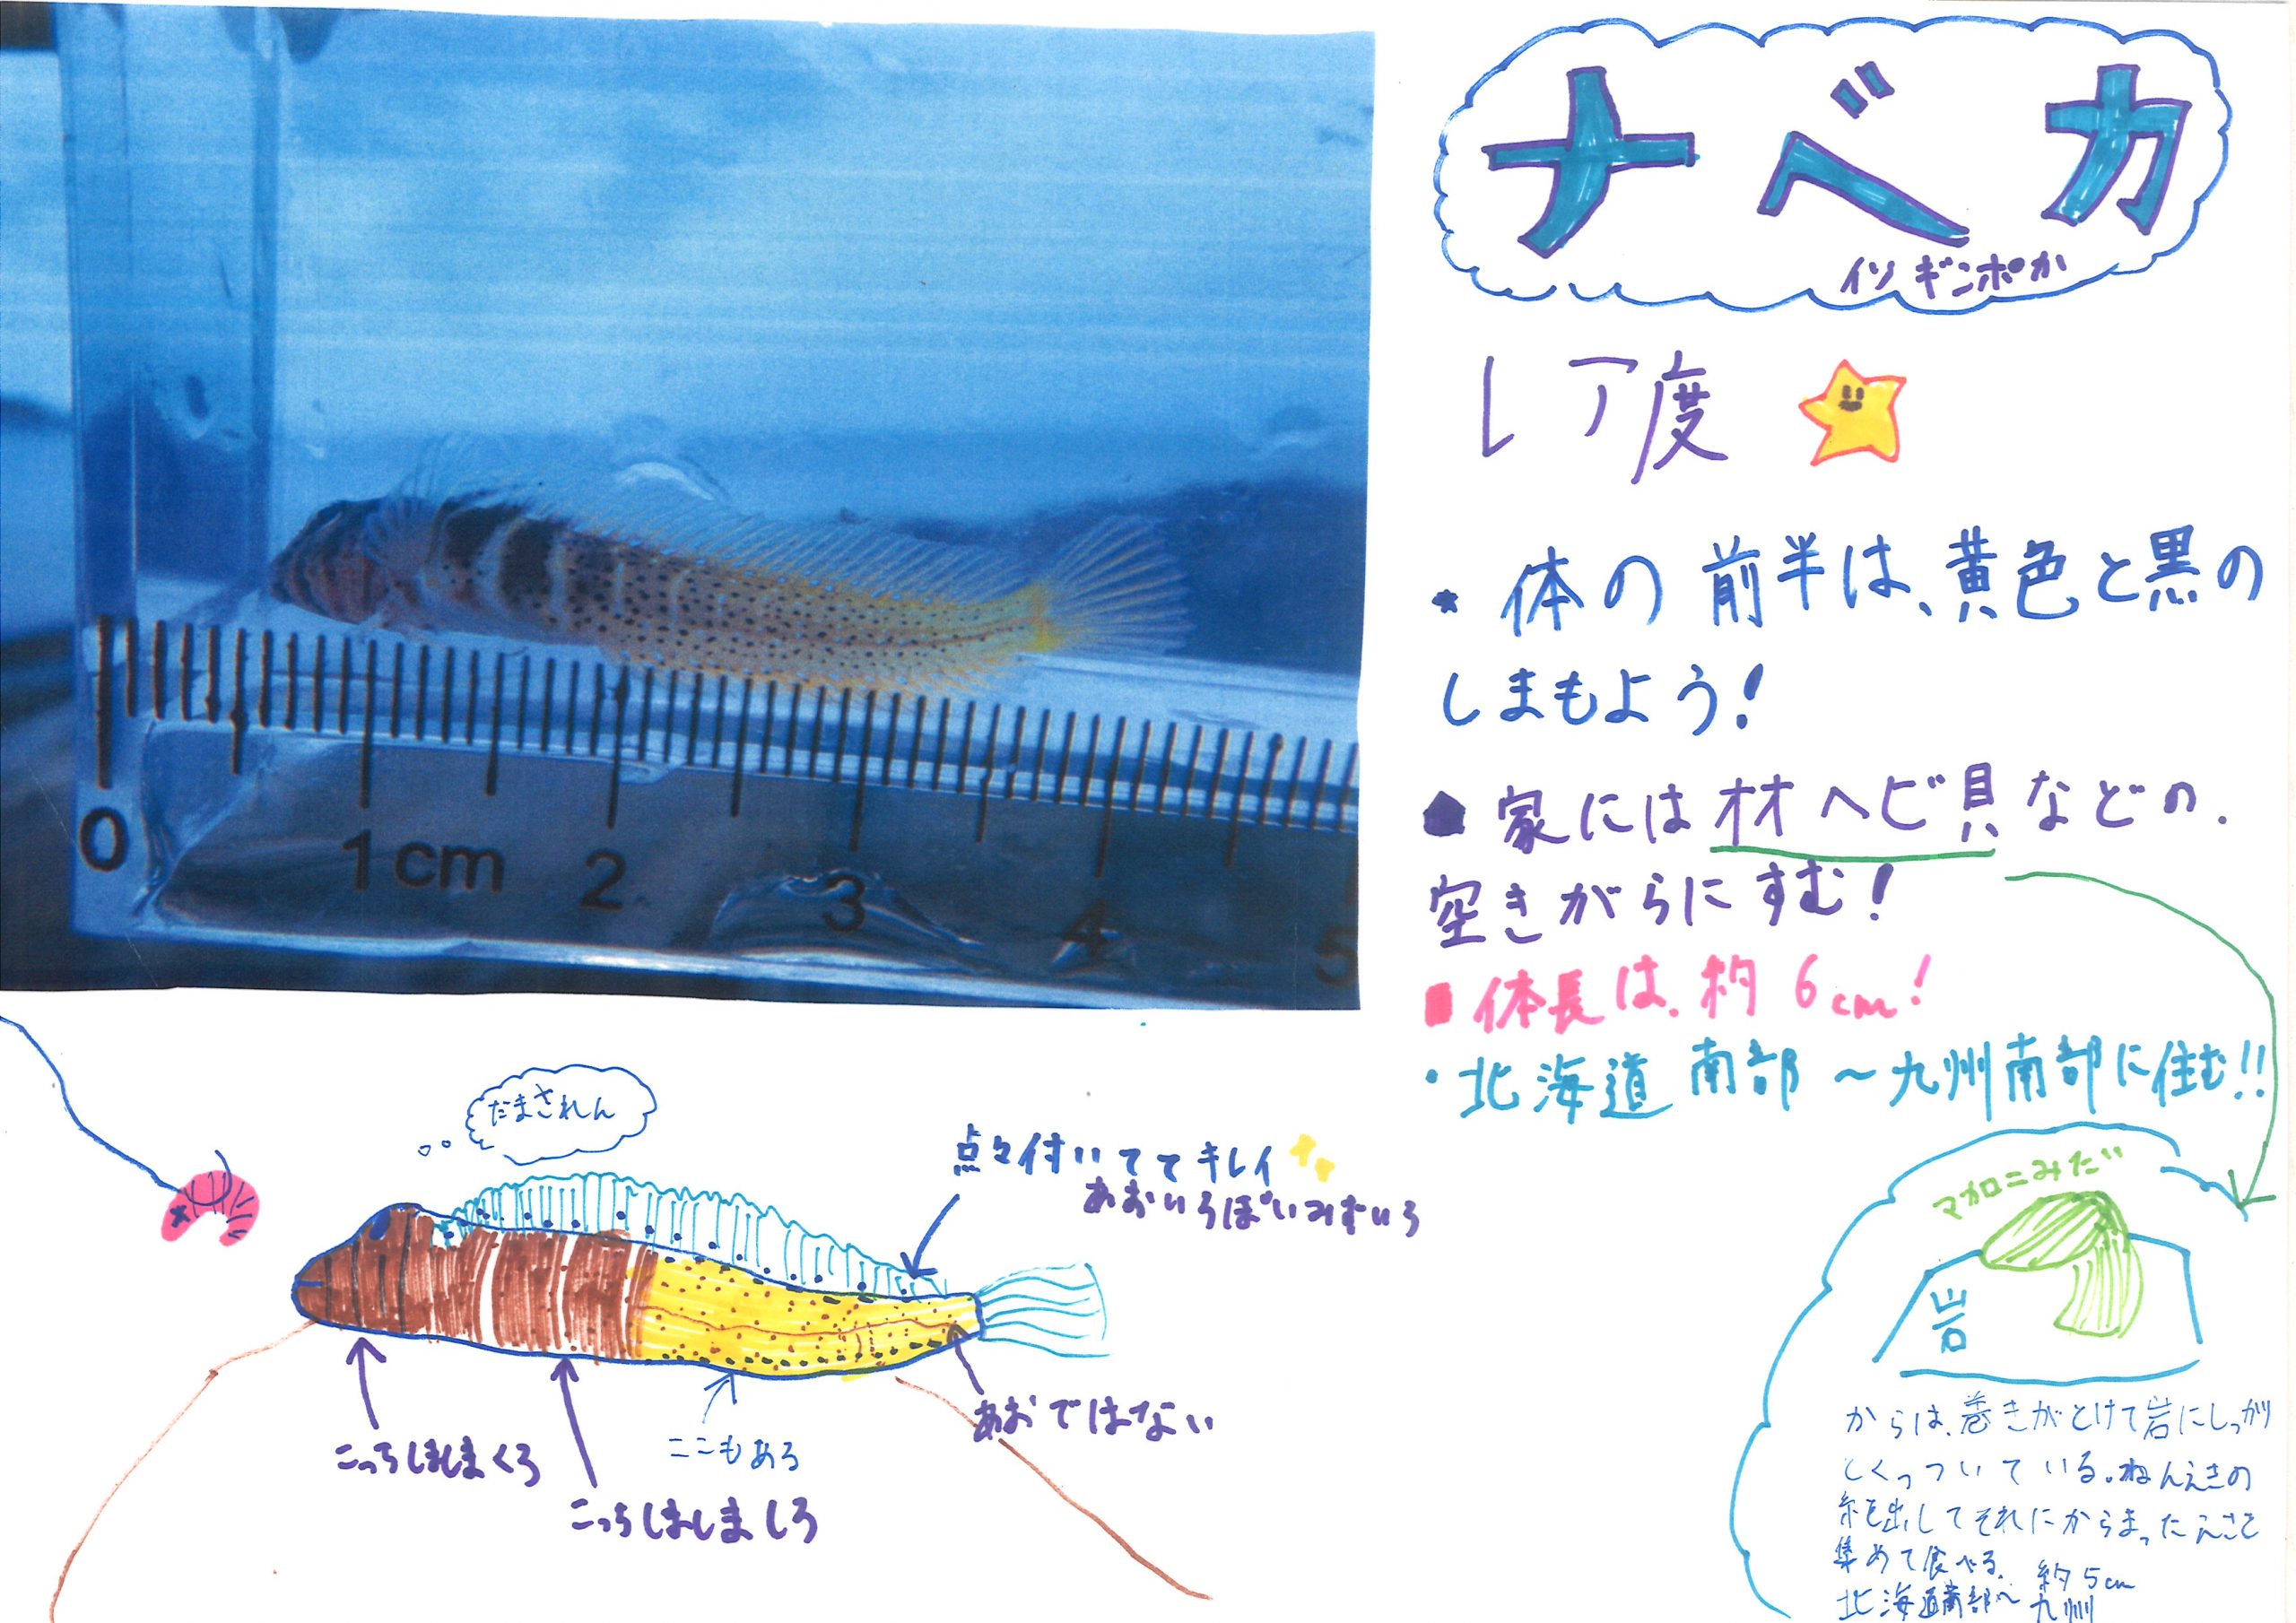 ナベカ
イソギンポか
レア度
体の前半は、黄色と黒の
しまもよう!
家にはオオヘビ貝などの
空きがらにすむ!
体長は、約6cm!
・北海道南部～九州南部に住む!!
0 1cm 2 3 4 5
だまされん
点々付いててキレイ
あおいろぽいみずいろ
こっちはしまくろ
こっちはしましろ
ここもある
あおではない
マカロニみたい
岩
からは、巻きがとけて岩にしっかり
とくっついている。ねんえきの
糸を出してそれにからまったえさを
集めて食べる。
約5cm
北海道南部～九州